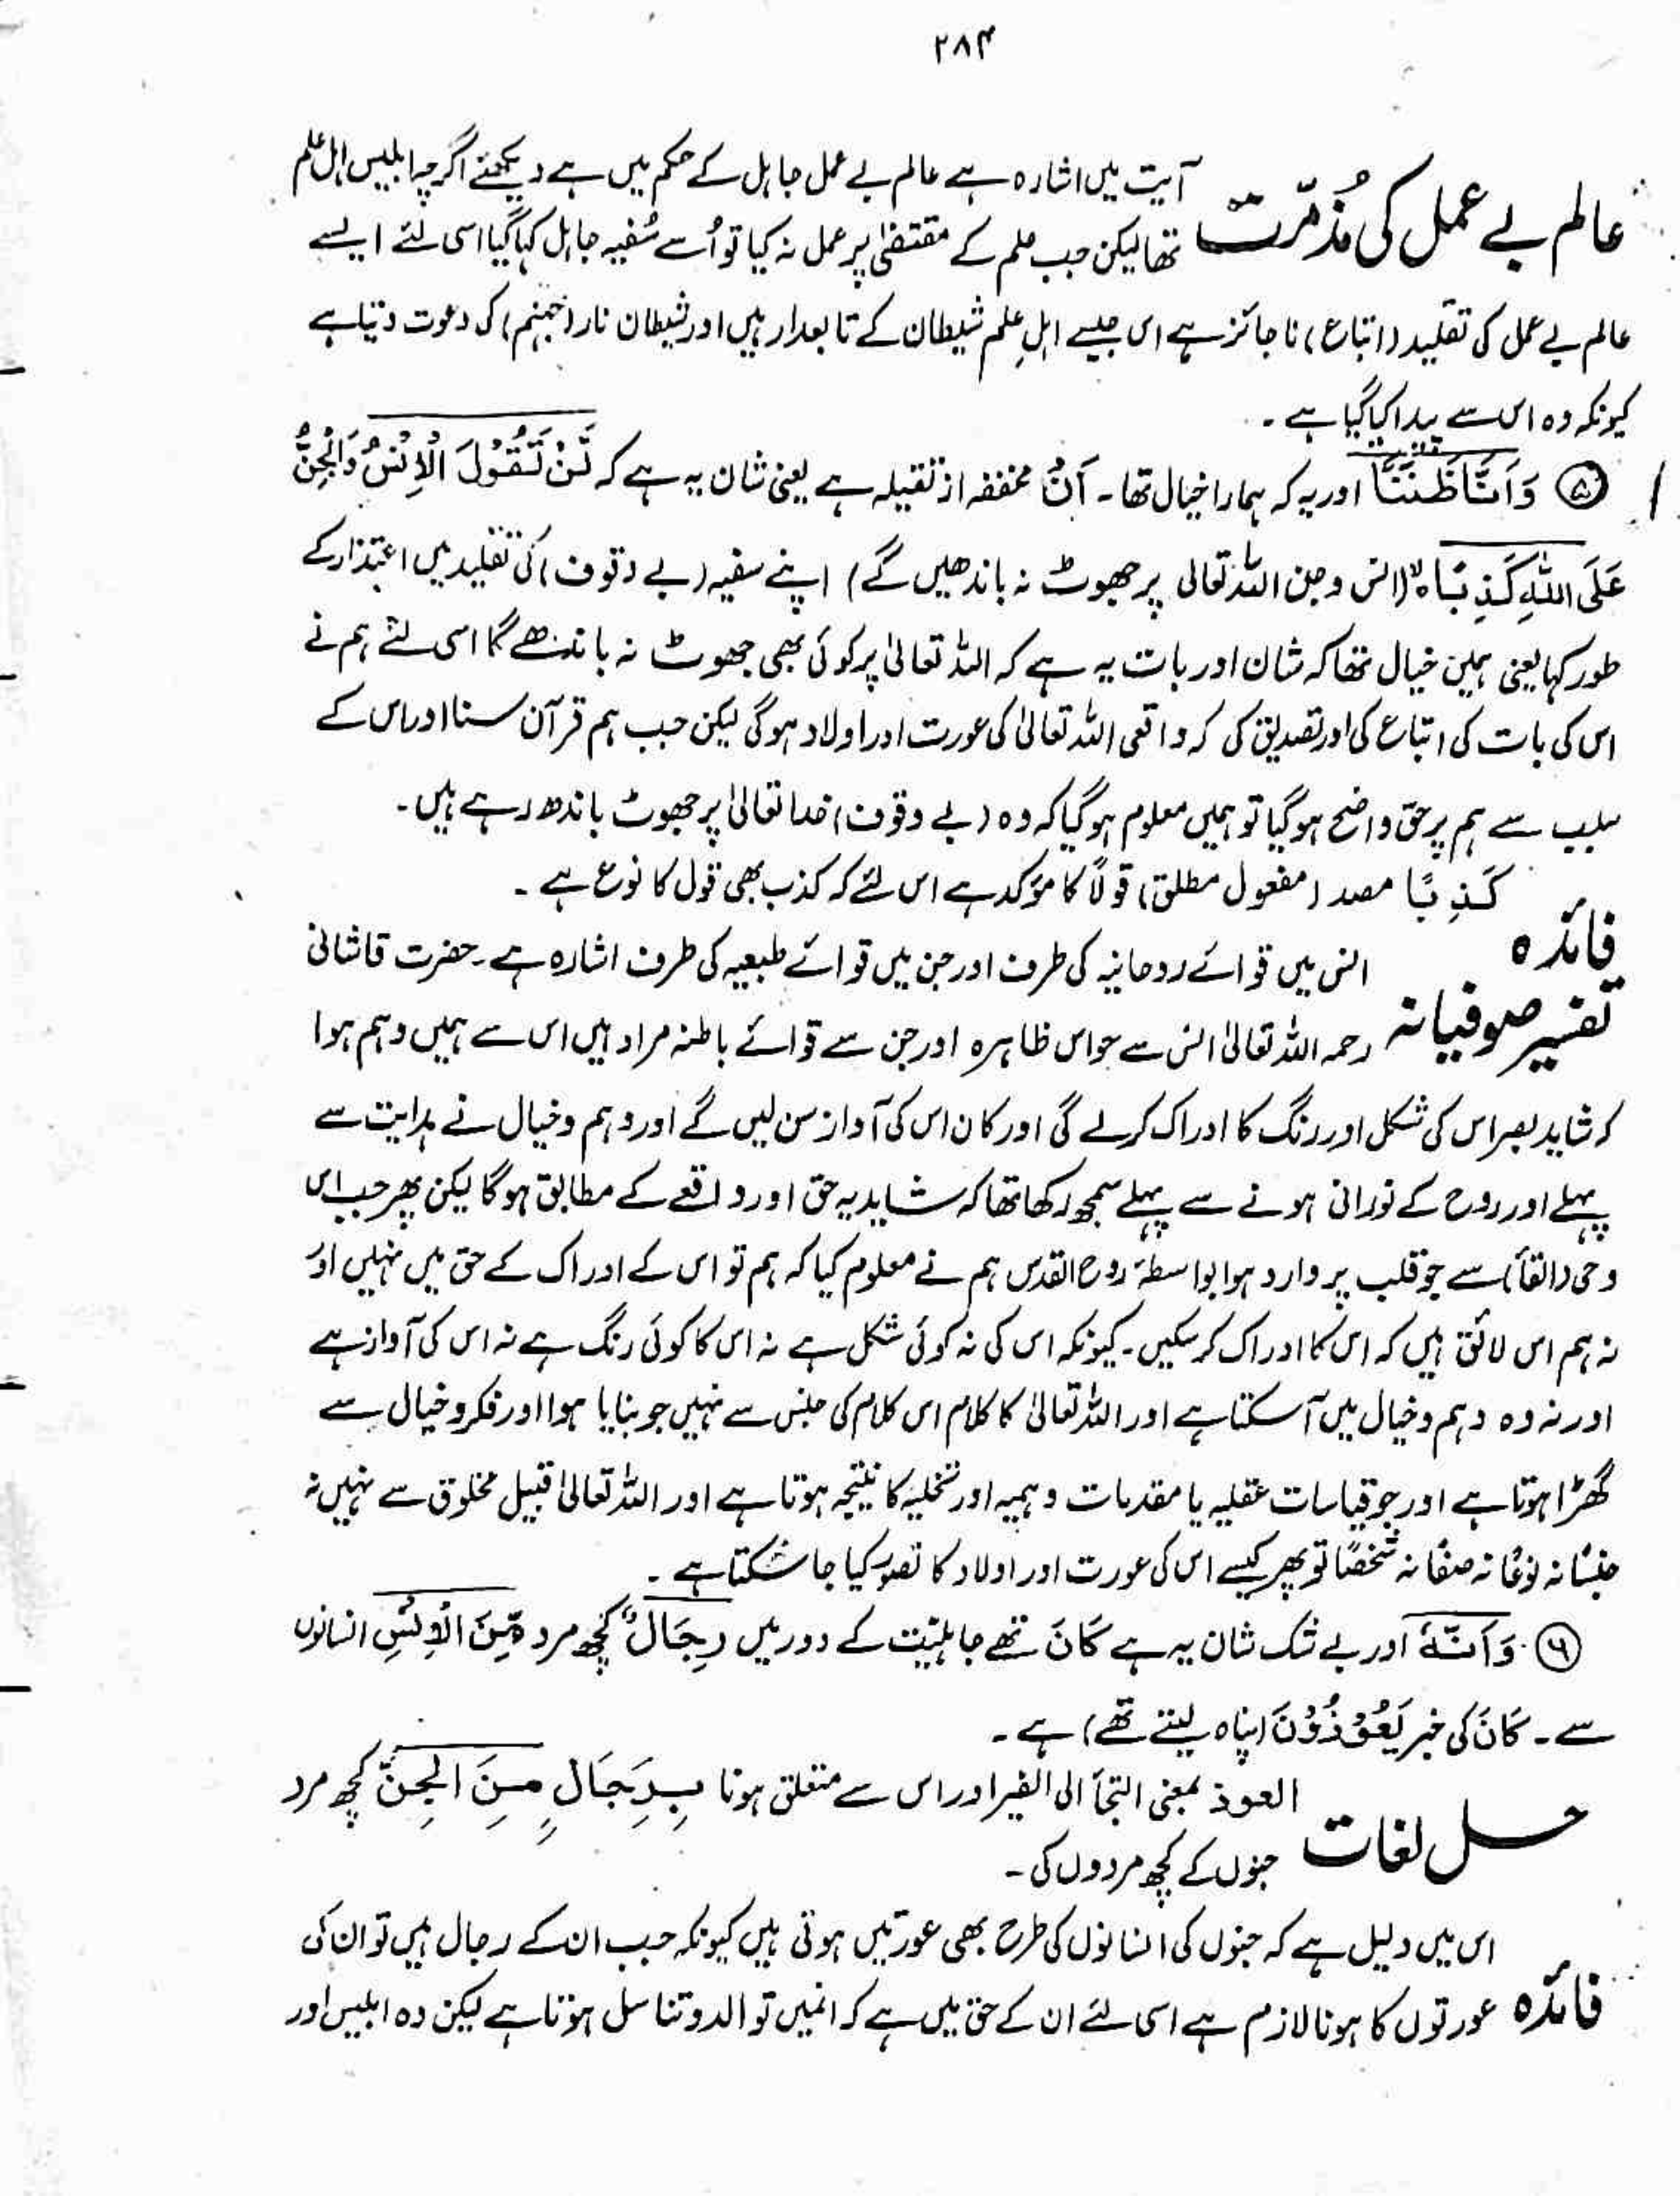 ۲۸۴
عالم بے عمل کی مذمّت
آیت میں اشارہ ہے عالم بے عمل جاہل کے حکم میں ہے دیکھئے اگرچہ ابلیس اہل علم
تھا لیکن جب علم کے مقتضیٰ پر عمل نہ کیا تو اُسے سُفیہ جاہل کہا گیا اسی لئے ایسے
عالم بے عمل کی تقلید (اتباع) ناجائز ہے اس جیسے اہلِ علم شیطان کے تابعدار ہیں اور شیطان نار (جہنم) کی دعوت دیتا ہے
کیونکہ وہ اس سے پیدا کیا گیا ہے ۔
⑤ وَاَنَّا ظَنَنَّا اور یہ کہ ہمارا خیال تھا ۔ اَنْ مخففہ از ثقیلہ ہے یعنی شان یہ ہے کہ لَّنْ تَقُوْلَ الْاِنْسُ وَالْجِنُّ
عَلَی اللّٰہِ کَذِبًا ہ (انس و جن اللہ تعالیٰ پر جھوٹ نہ باندھیں گے) اپنے سفیہ (بے وقوف) کی تقلید میں اعتذار کے
طور کہا یعنی ہمیں خیال تھا کہ شان اور بات یہ ہے کہ اللہ تعالیٰ پر کوئی بھی جھوٹ نہ باندھے گا اسی لئے ہم نے
اس کی بات کی اتباع کی اور تصدیق کی کہ واقعی اللہ تعالیٰ کی عورت اور اولاد ہوگی لیکن جب ہم قرآن سنا اور اس کے
سبب سے ہم پر حق واضح ہوگیا تو ہمیں معلوم ہوگیا کہ وہ (بے وقوف) خدا تعالیٰ پر جھوٹ باندھ رہے ہیں ۔
فائدہ
کَذِبًا مصدر (مفعول مطلق) قولًا کا مؤکد ہے اس لئے کہ کذب بھی قول کا نوع ہے ۔
تفسیر صوفیانہ
انس میں قوائے روحانیہ کی طرف اور جن میں قوائے طبعیہ کی طرف اشارہ ہے ۔ حضرت قاشانی
رحمہ اللہ تعالیٰ انس سے حواس ظاہرہ اور جن سے قوائے باطنہ مراد ہیں اس سے ہمیں وہم ہوا
کہ شاید بصر اس کی شکل اور رنگ کا ادراک کرلے گی اور کان اس کی آواز سن لیں گے اور وہم و خیال نے ہدایت سے
پہلے اور روح کے نورانی ہونے سے پہلے سمجھ رکھا تھا کہ شاید یہ حق اور واقعے کے مطابق ہوگا لیکن پھر جب اس
وحی (القأ) سے جو قلب پر وارد ہوا بواسطہ روح القدس ہم نے معلوم کیا کہ ہم تو اس کے ادراک کے حق میں نہیں اور
نہ ہم اس لائق ہیں کہ اس کا ادراک کرسکیں ۔ کیونکہ اس کی نہ کوئی شکل ہے نہ اس کا کوئی رنگ ہے نہ اس کی آواز ہے
اور نہ وہ وہم و خیال میں آسکتا ہے اور اللہ تعالیٰ کا کلام اس کلام کی جنس سے نہیں جو بنایا ہوا اور فکر و خیال سے
گھڑا ہوتا ہے اور جو قیاسات عقلیہ یا مقدمات وہمیہ اور تخلیہ کا نتیجہ ہوتا ہے اور اللہ تعالیٰ قبیل مخلوق سے نہیں نہ
جنسًا نہ نوعًا نہ صنفًا نہ شخصًا تو پھر کیسے اس کی عورت اور اولاد کا تصور کیا جاسکتا ہے ۔
⑥ وَاَنَّہٗ اور بے شک شان یہ ہے کَانَ تھے جاہلیّت کے دور میں رِجَالٌ کچھ مرد مِّنَ الْاِنْسِ انسانوں
سے ۔ کَانَ کی خبر یَعُوْذُوْنَ (پناہ لیتے تھے) ہے ۔
حل لغات
العوذ بمعنی التجأ الی الغیر اور اس سے متعلق ہونا بِرِجَالٍ مِنَ الجِنِّ کچھ مرد
جنوں کے کچھ مردوں کی ۔
فائدہ
اس میں دلیل ہے کہ جنوں کی انسانوں کی طرح بھی عورتیں ہوتی ہیں کیونکہ جب ان کے رجال ہیں تو ان کی
عورتوں کا ہونا لازم ہے اسی لئے ان کے حق میں ہے کہ انہیں توالد و تناسل ہوتا ہے لیکن وہ ابلیس اور